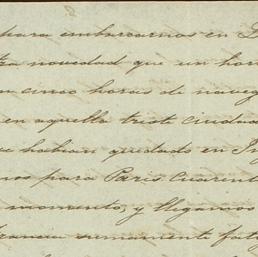 para embarcarnos en D
tra novedad que un hor
n cinco horas de naveg
en aquella triste ciudad
e habian quedado en Ing
nos para Paris cuarent
momento, y llegamos
Francia sumamente fatig